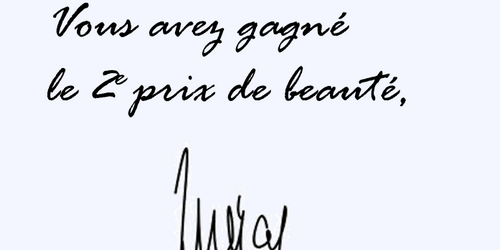 Vous avez gagné
le 2e prix de beauté,